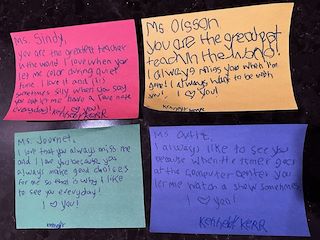 Ms. Sindy,
you are the greatest teacher
in the world I love when you
let me color during quiet
time. I love it and it's
sometimes silly when you say
you can't have a face nope
everyday! I ♡ you!
Kennett KERR
Ms Olsson
you are the greatest
teach in the world!
I always miss you when I'm
gone! I always want to be with
you! I ♡ you!
Kennett KERR
Ms. Journet,
I love that you always miss me
and I love you because you
always make good choices
for me so that is why I like
to see you everyday!
I ♡ you!
Kennett
Ms.
I always like to see you
because when the timer goes
at the computer center you
let me watch a show sometimes
I ♡ you!
Kennett KERR